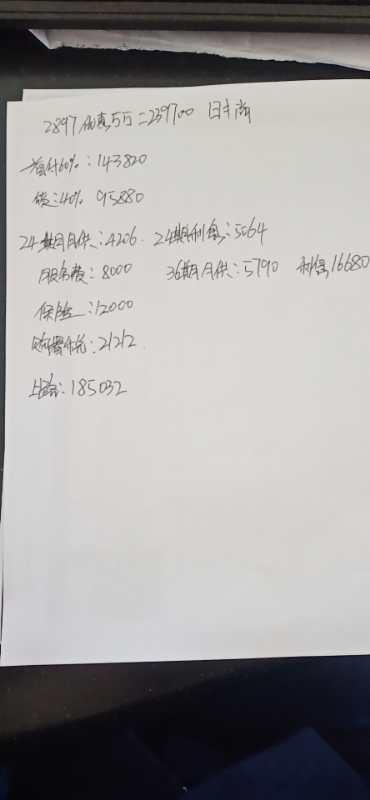 2897 优惠5万=239700 日丰尚
首付60%:143820
贷:40% 95880
24期月供:4206. 24期利息:5064
服务费:8000 36期月供:5790 利息16680
保险:12000
购置税:21212
上路:185032